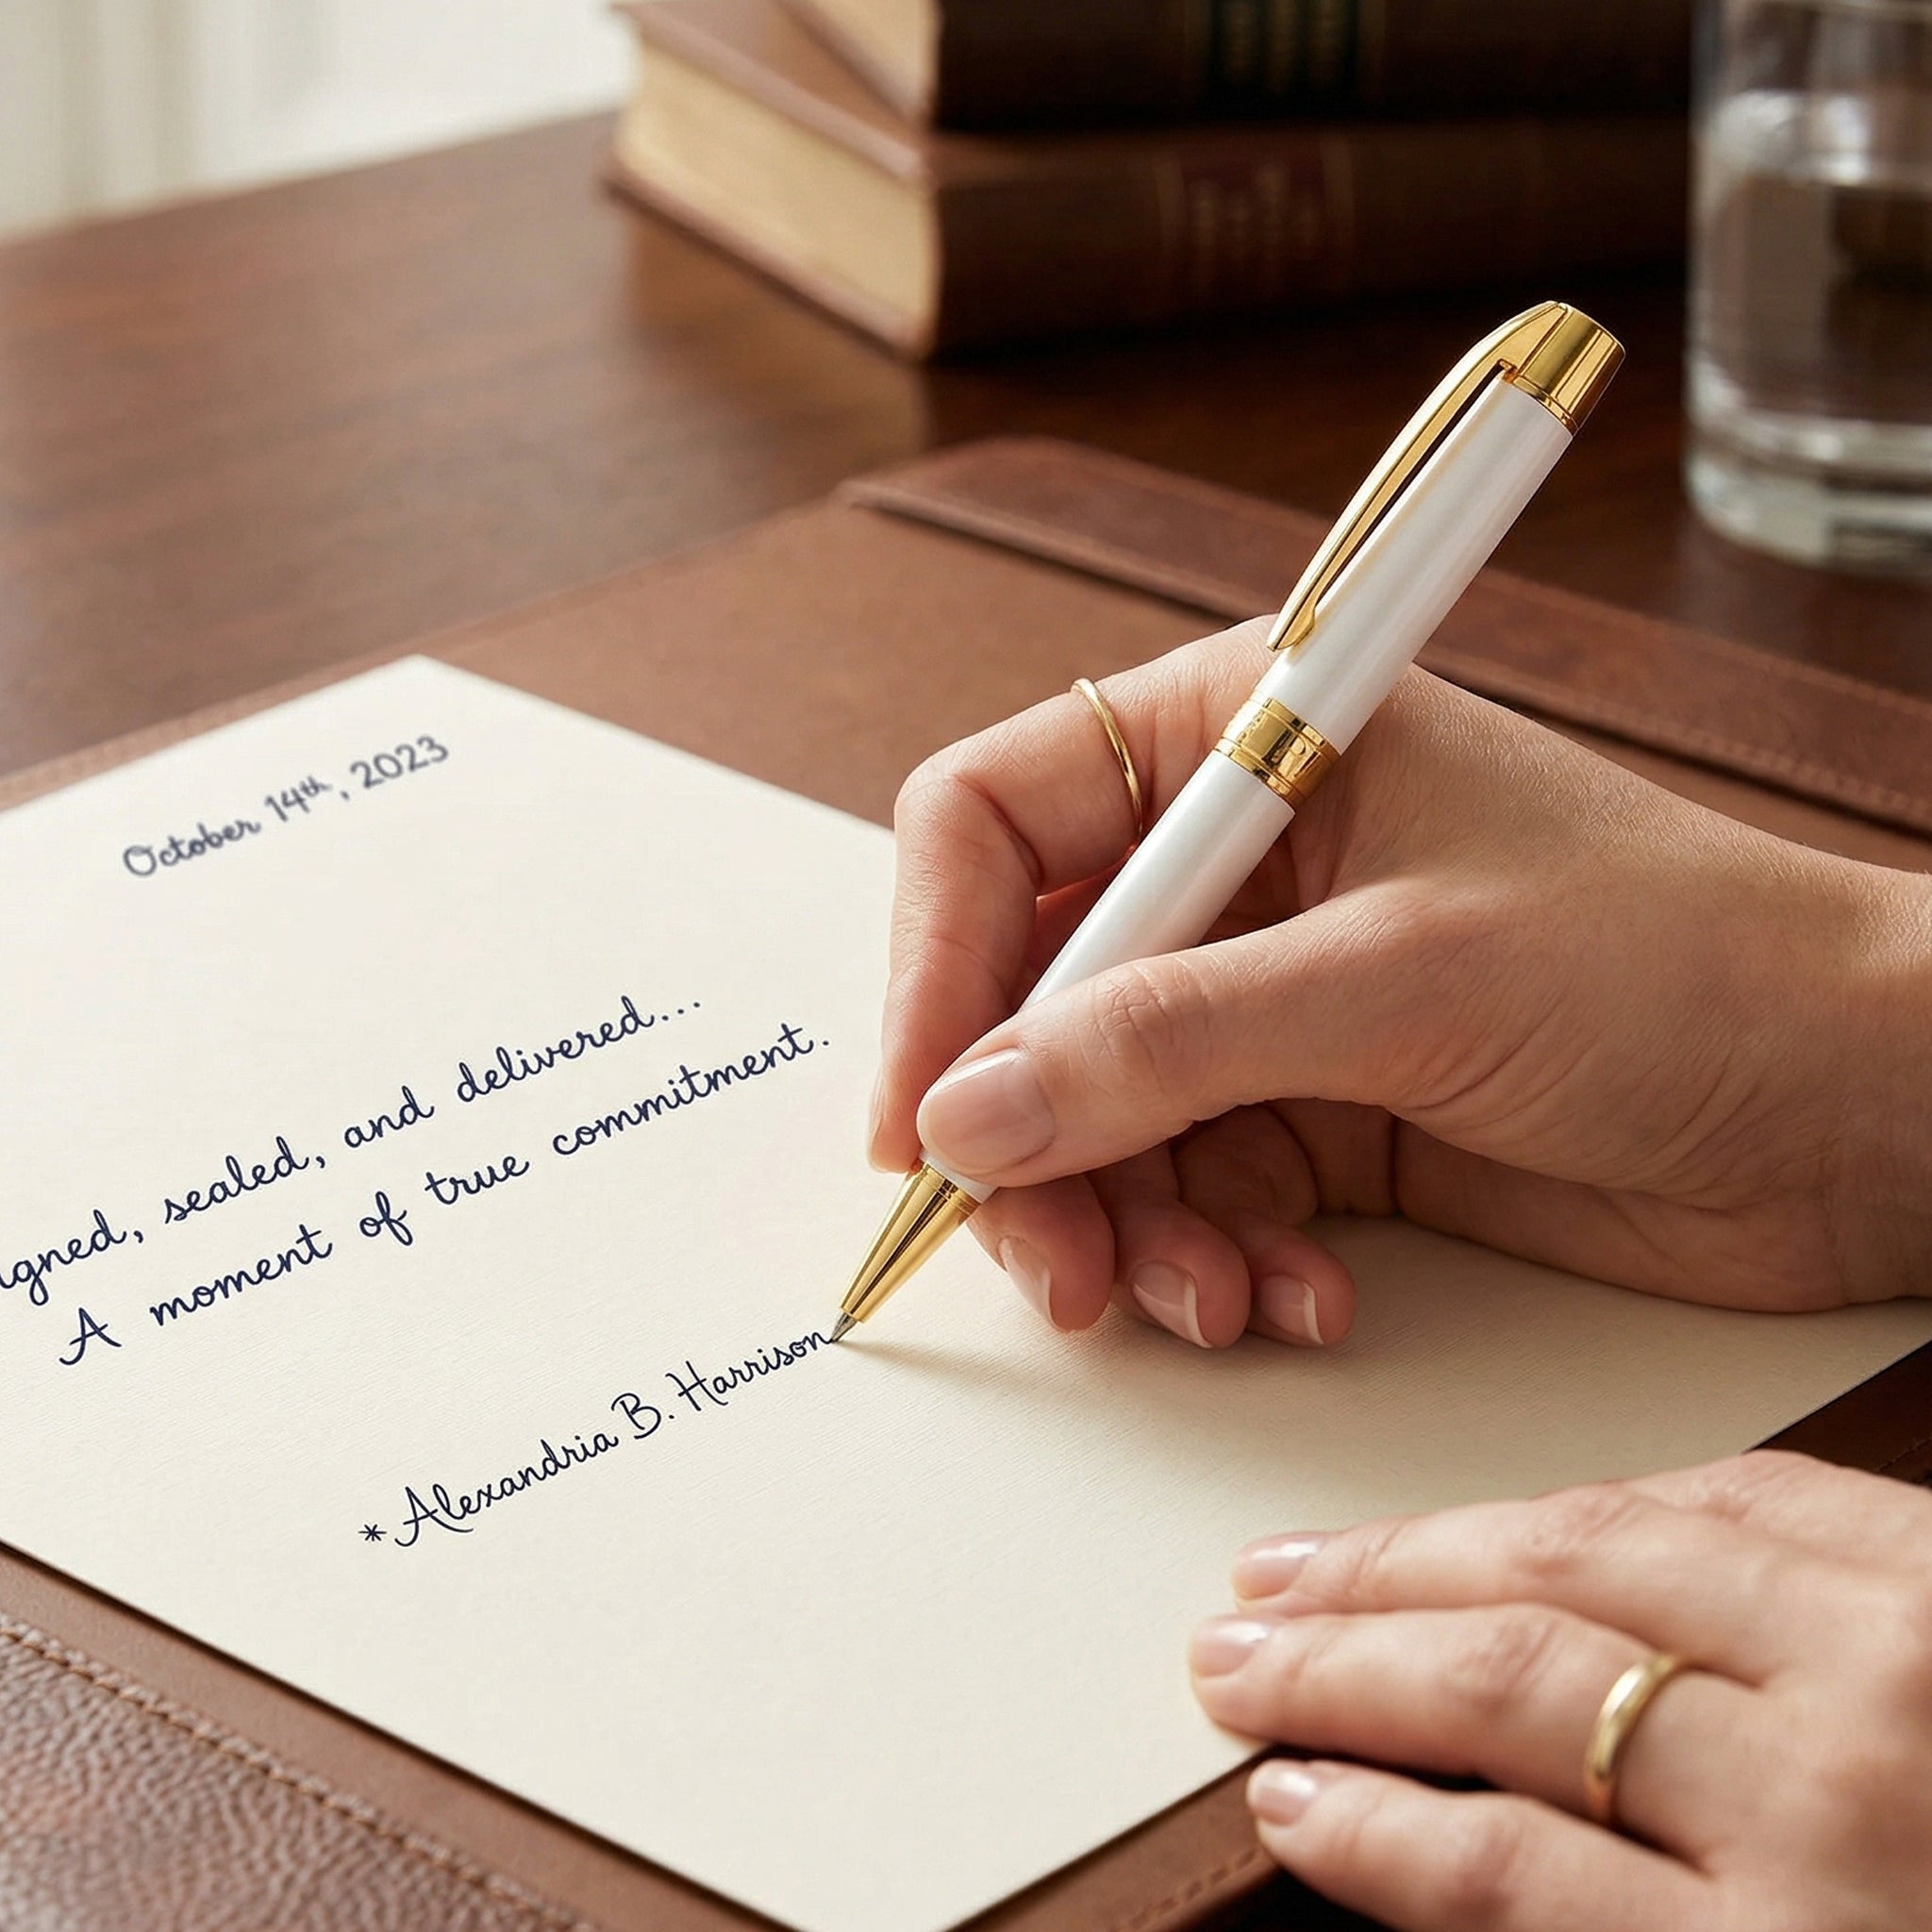 October 14th, 2023
igned, sealed, and delivered...
A moment of true commitment.
* Alexandria B. Harrison